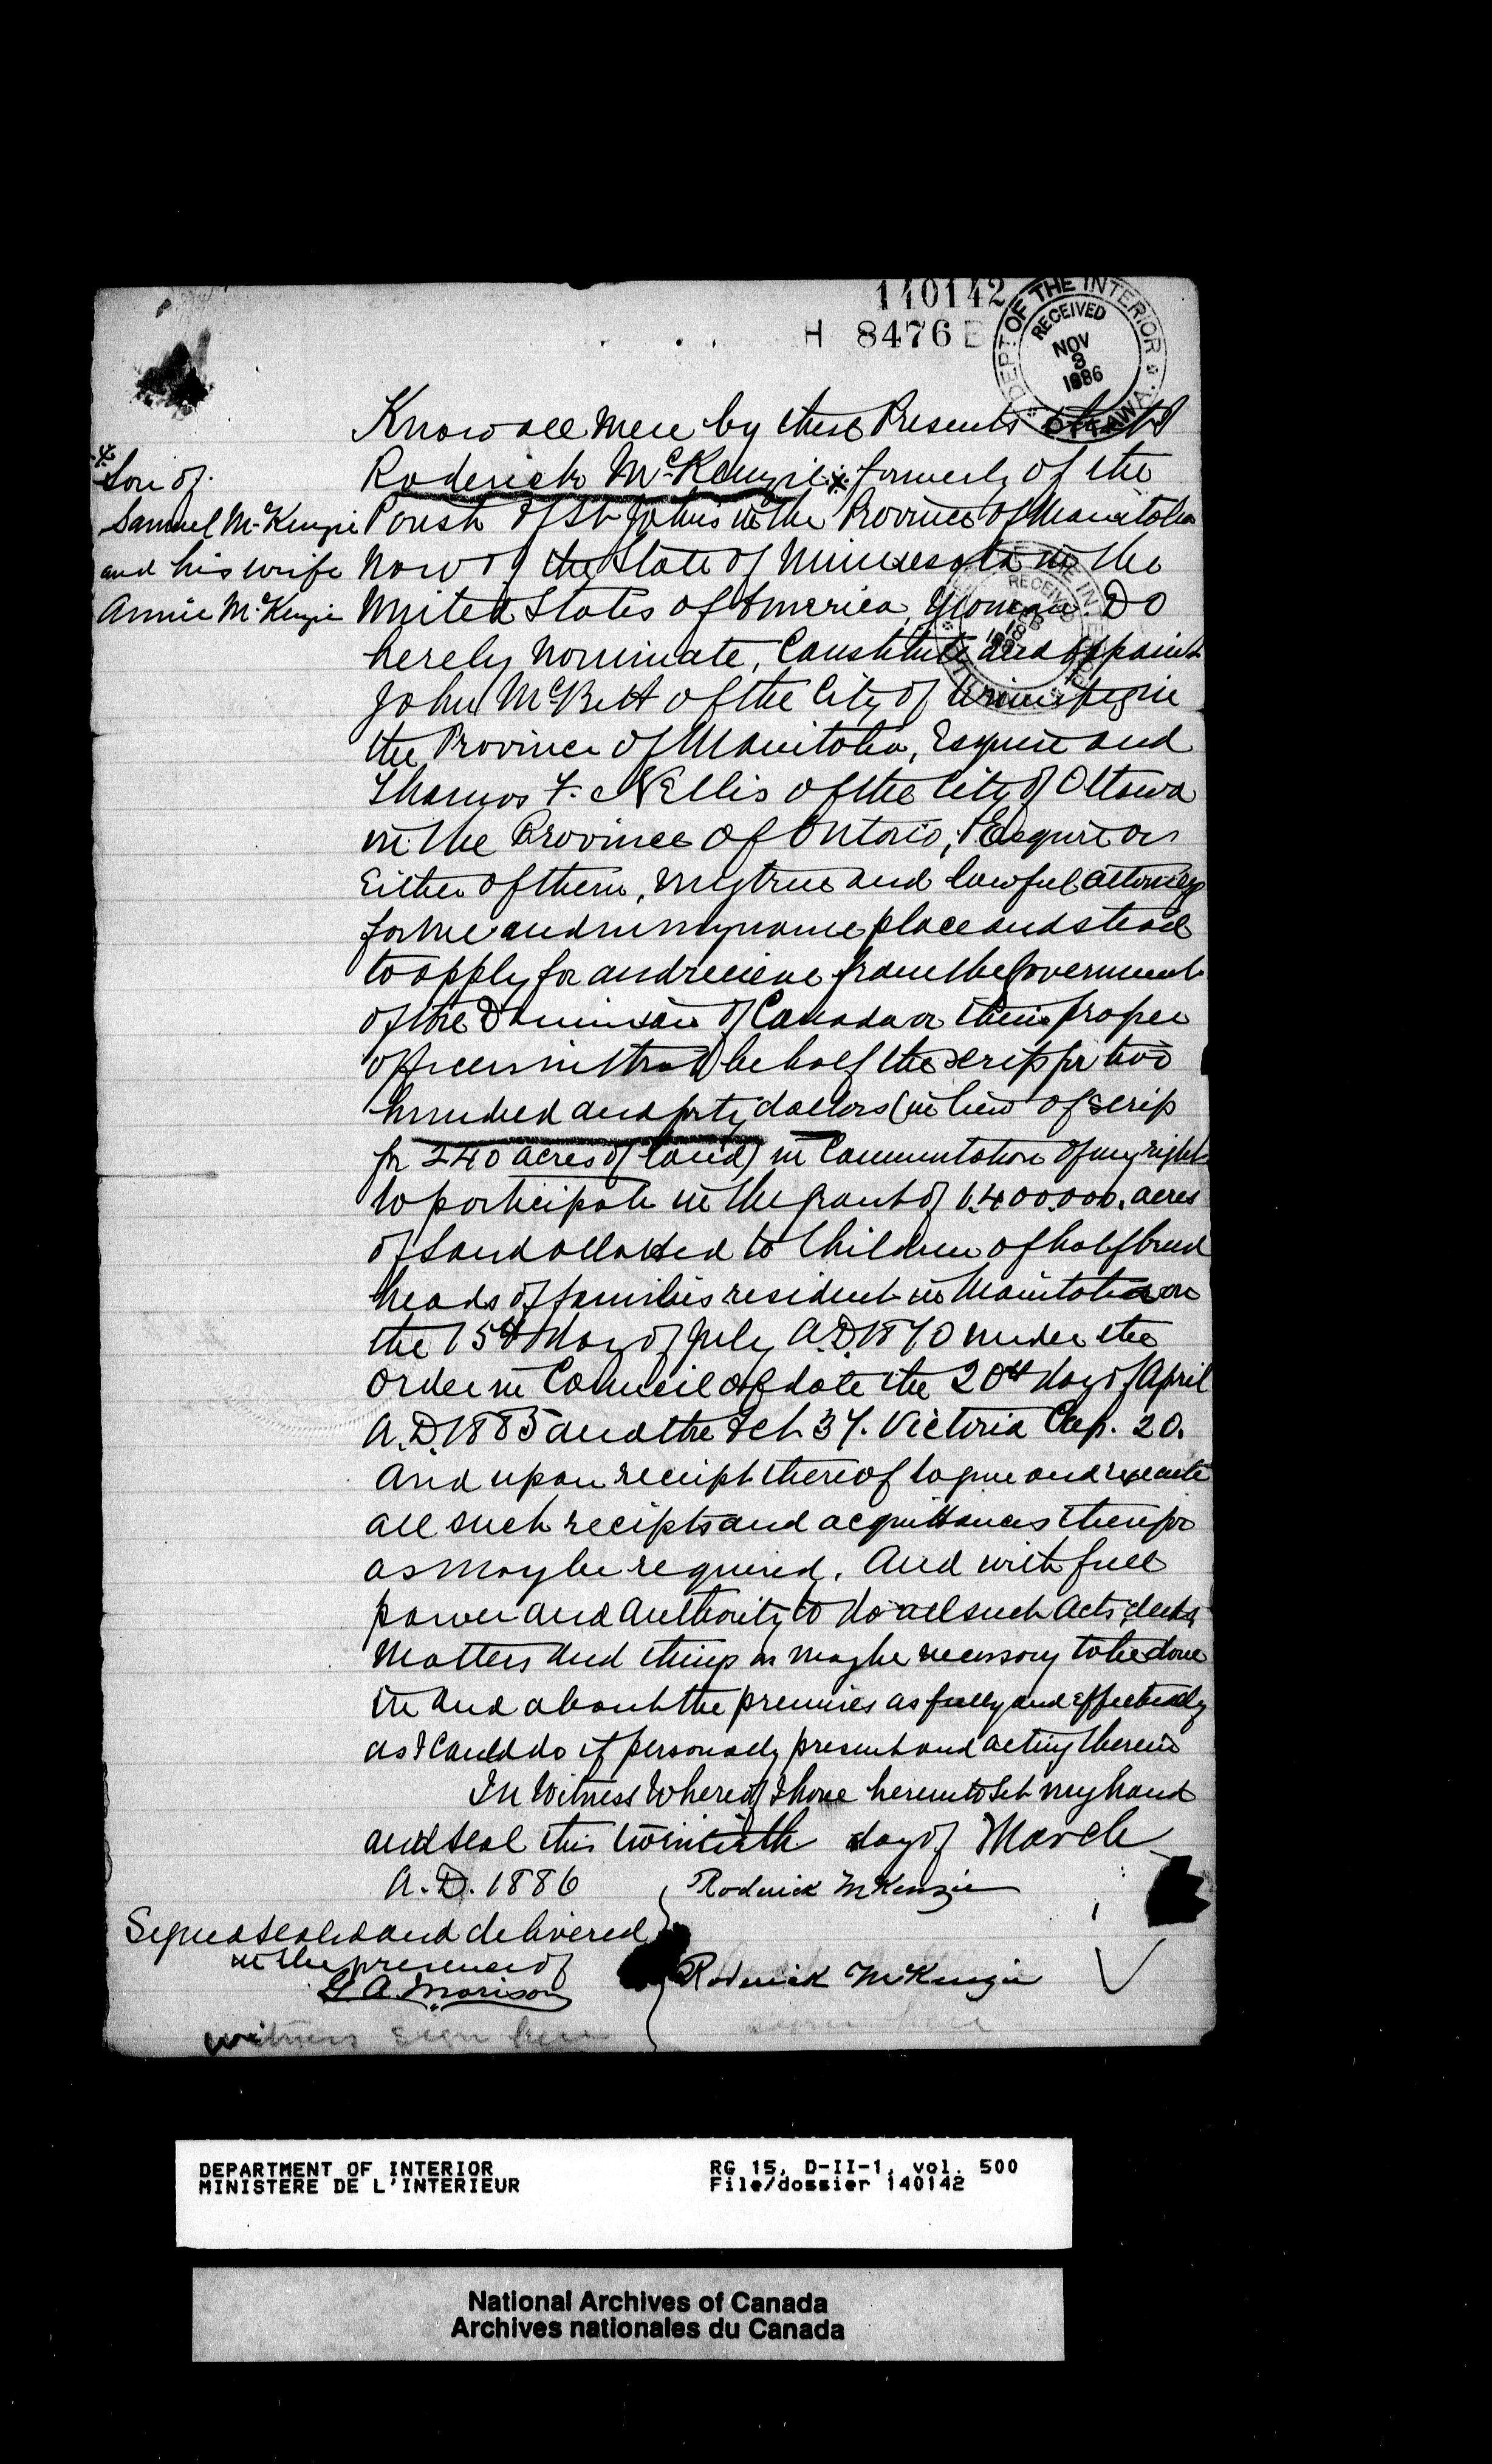 140142
H 8476 E
DEPT OF THE INTERIOR
RECEIVED
NOV
3
1886
OTTAWA
Know all Men by these Presents that I
Roderick McKenzie * formerly of the
* Son of
Samuel McKenzie
and his wife
Annie McKenzie
Parish of St Johns in the Province of Manitoba
now of the State of Minnesota in the
United States of America, Yeoman Do
hereby nominate, Constitute and appoint
John McBeth of the City of Winnipeg in
the Province of Manitoba, Esquire and
Thomas F. Nellis of the City of Ottawa
in the Province of Ontario, Esquire or
Either of them, my true and lawful attorney
for me and in my name place and stead
to apply for and receive from the Government
of the Dominion of Canada or their proper
officers in that behalf the scrip for two
hundred and forty dollars (in lieu of scrip
for 240 acres of land) in Commutation of my right
to participate in the grant of 1.400.000. acres
of Land allotted to Children of halfbreed
heads of families resident in Manitoba on
the 15th day of July A.D. 1870 under the
Order in Council of date the 20th day of April
A.D. 1885 and the Act 37. Victoria Cap. 20.
And upon receipt thereof to give and execute
all such receipts and acquittances therefor
as may be required. And with full
power and authority to do all such Acts, deeds,
Matters and things as may be necessary to be done
in and about the premises as fully and effectually
as I could do if personally present and acting therein
In Witness Whereof I have hereunto set my hand
and seal this twentieth day of March
A.D. 1886
Roderick McKenzie
Signed sealed and delivered
in the presence of
G. A. Morison
Roderick McKenzie
witness sign here
sign here
DEPARTMENT OF INTERIOR
MINISTERE DE L'INTERIEUR
RG 15, D-II-1, vol. 500
File/dossier 140142
National Archives of Canada
Archives nationales du Canada